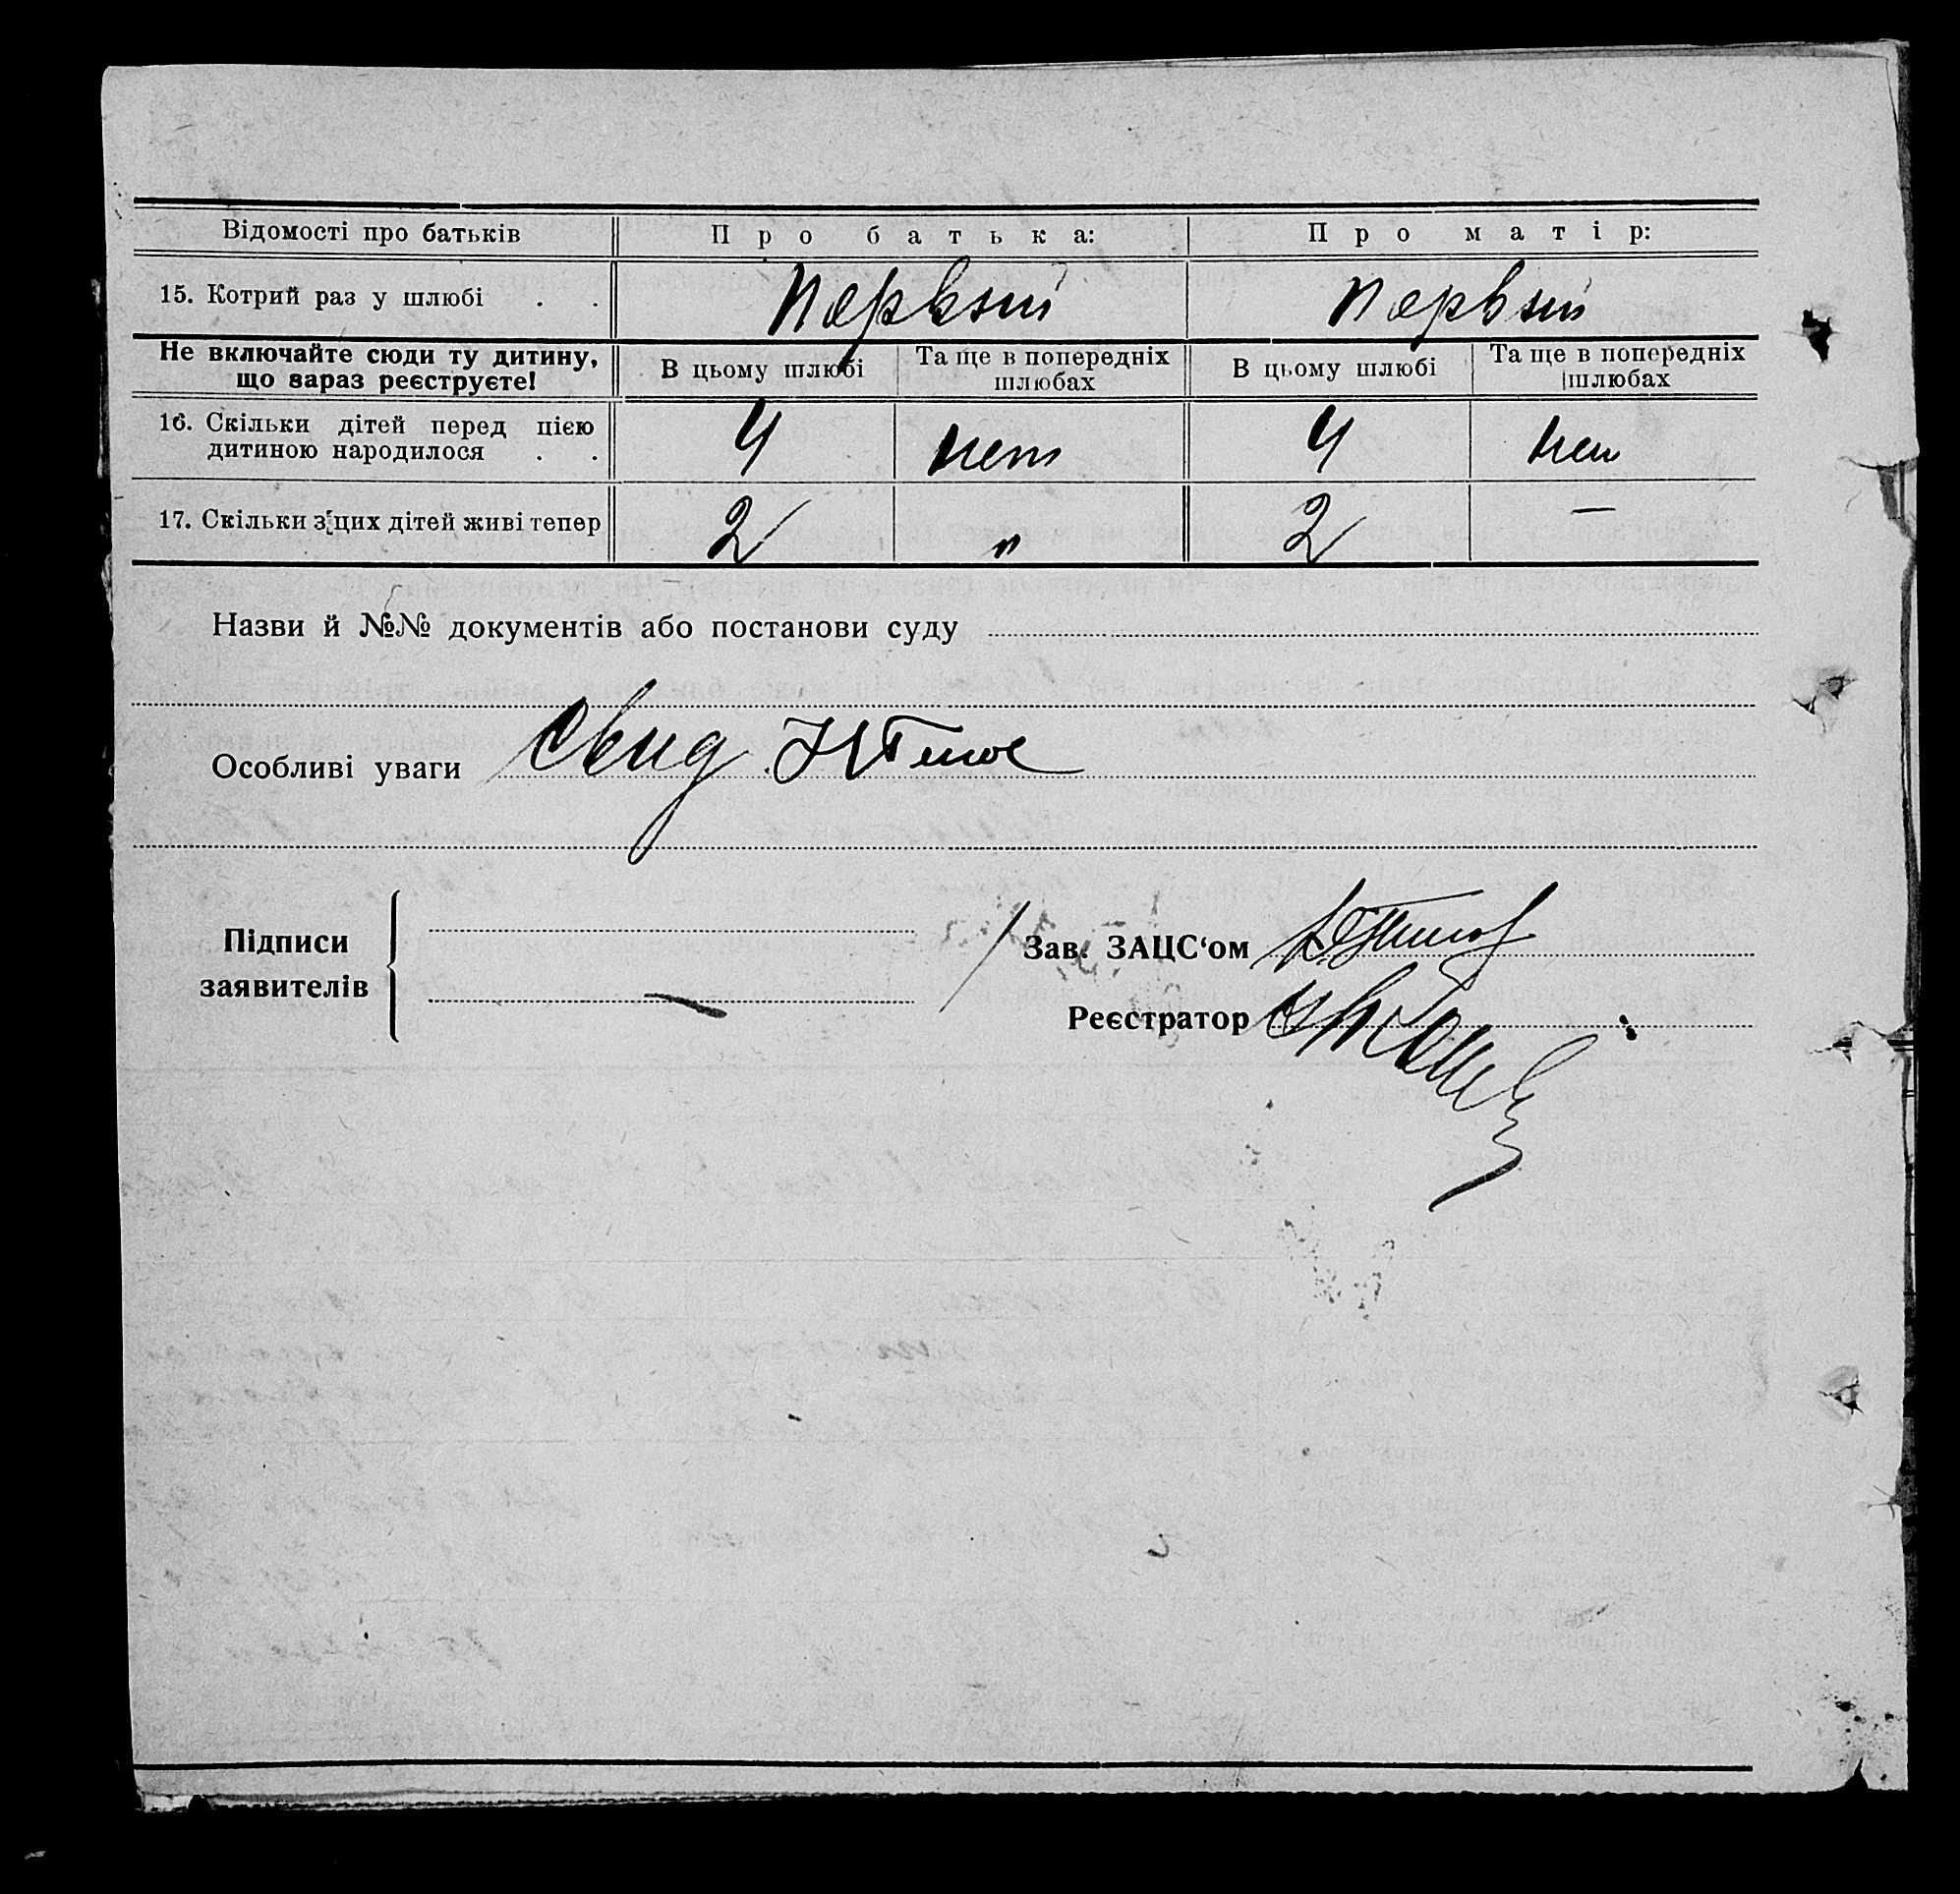 Відомості про батьків Про батька: Про матір:
15. Котрий раз у шлюбі . . Первый Первый
Не включайте сюди ту дитину, що зараз реєструєте! В цьому шлюбі Та ще в попередніх шлюбах В цьому шлюбі Та ще в попередніх шлюбах
16. Скільки дітей перед цією дитиною народилося . . 4 нет 4 нет
17. Скільки з цих дітей живі тепер 2 " 2 —
Назви й №№ документів або постанови суду
Особливі уваги свид
Підписи заявителів
Зав. ЗАЦС‘ом
Реєстратор